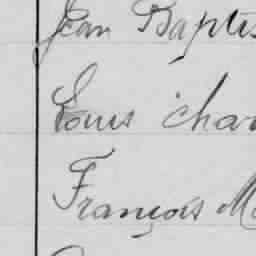 Jean Baptis
Louis char
François Ma